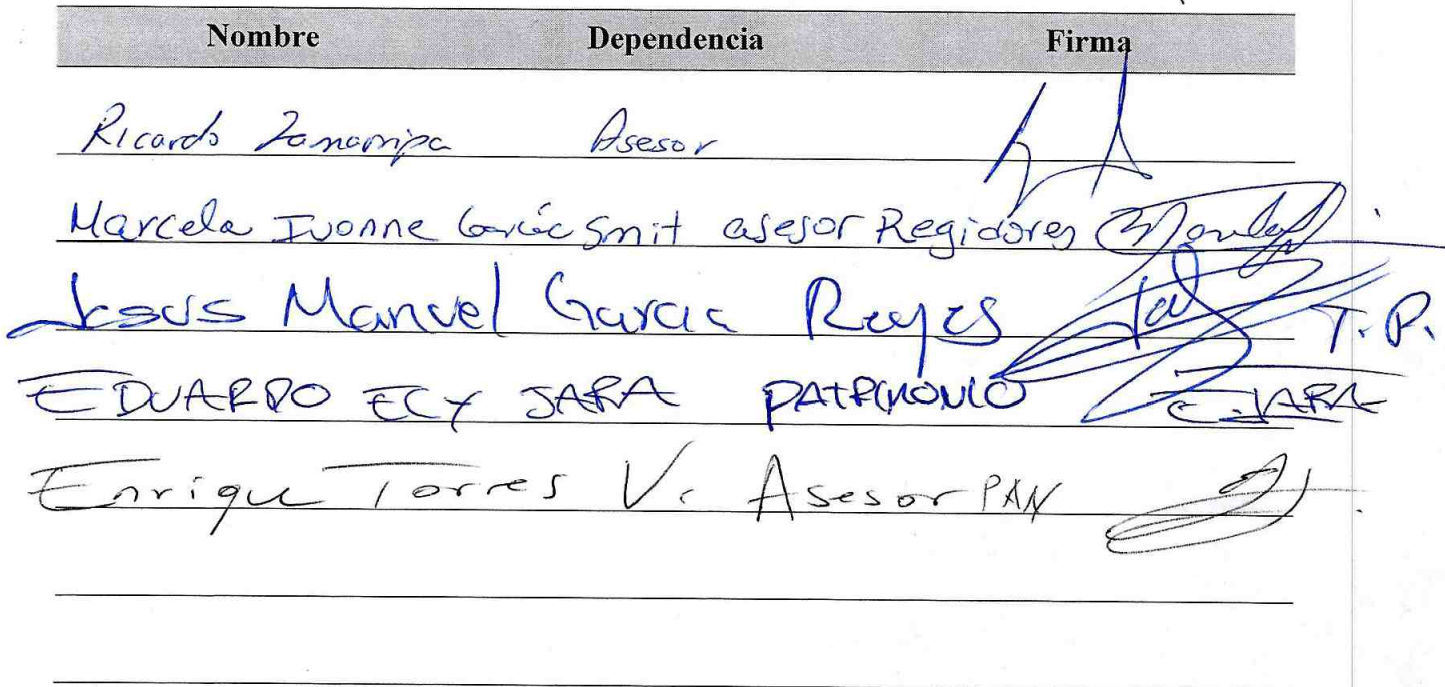 Nombre Dependencia Firma
Ricardo Zamarripa Asesor
Marcela Ivonne García Smit asesor Regidores
Jesus Manuel Garcia Reyes T.P.
EDUARDO ECY JARA PATRIMONIO E.JARA
Enrique Torres V. Asesor PAN